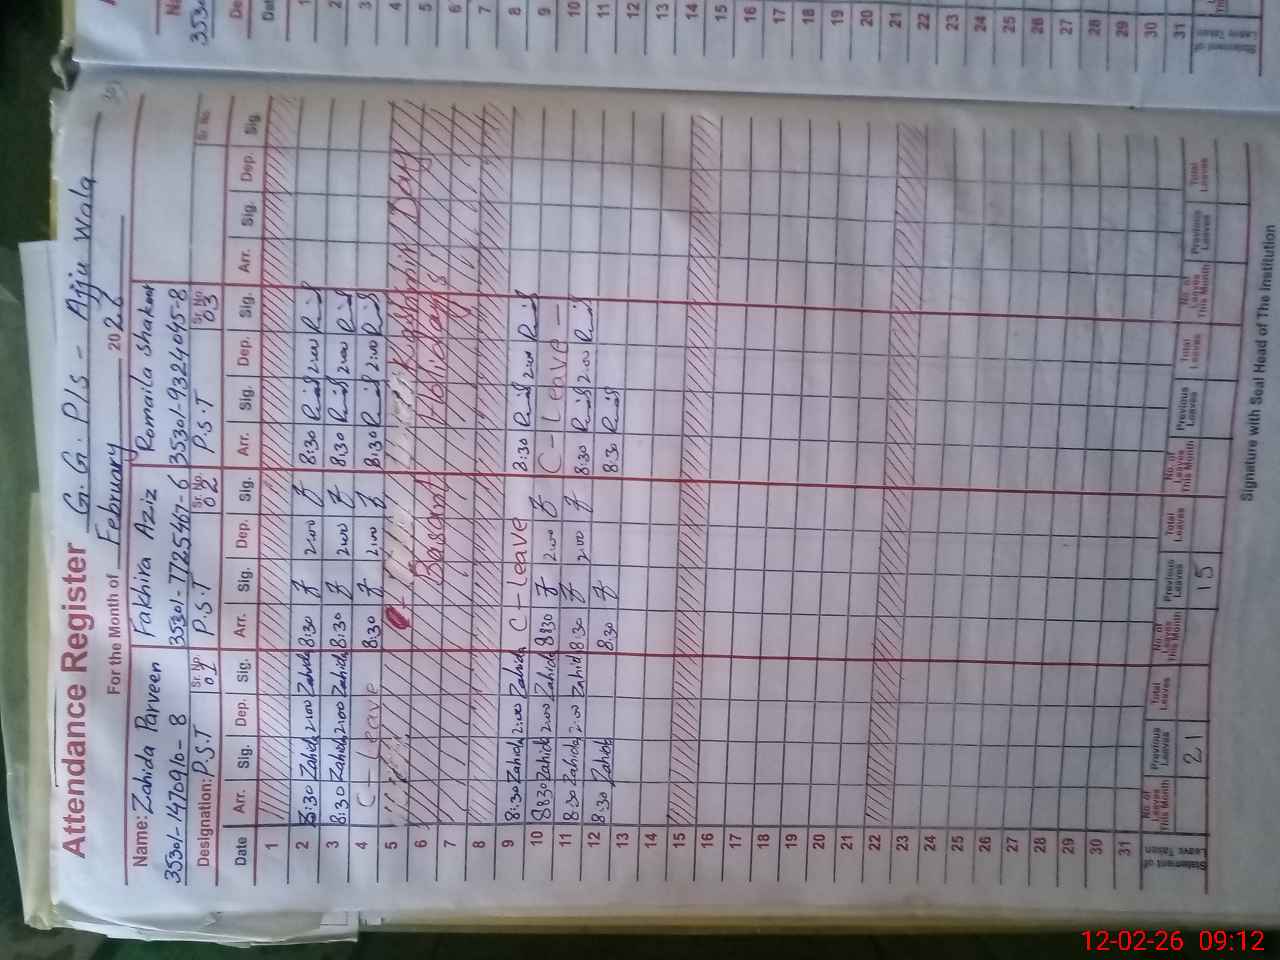 Attendance Register G. G. P/S - Ajju Wala
For the Month of February 2026
Name: Zahida Parveen Fakhira Aziz Romaila Shakeet
35301-1470910-8 35301-7725467-6 35301-9324045-8
Designation: P.S.T Sr. No. 01 P.S.T Sr. No. 02 P.S.T Sr. No. 03 Sr. No.
Date Arr. Sig. Dep. Sig. Arr. Sig. Dep. Sig. Arr. Sig. Dep. Sig. Arr. Sig. Dep. Sig.
1
2 8:30 Zahida 2:00 Zahida 8:30 2:00 8:30 2:00
3 8:30 Zahida 2:00 Zahida 8:30 2:00 8:30 2:00
4 C - Leave 8:30 2:00 8:30 2:00
5 Kashmir Day
6 Basant Holidays
7
8
9 8:30 Zahida 2:00 Zahida C - Leave 8:30 2:00
10 8:30 Zahida 2:00 Zahida 8:30 2:00 C - Leave -
11 8:30 Zahida 2:00 Zahida 8:30 2:00 8:30 2:00
12 8:30 Zahida 8:30 8:30
13
14
15
16
17
18
19
20
21
22
23
24
25
26
27
28
29
30
31
Statement of Leave Taken No. of Leaves This Month Previous Leaves Total Leaves No. of Leaves This Month Previous Leaves Total Leaves No. of Leaves This Month Previous Leaves Total Leaves No. of Leaves This Month Previous Leaves Total Leaves
21 15
Signature with Seal Head of The Institution
12-02-26 09:12